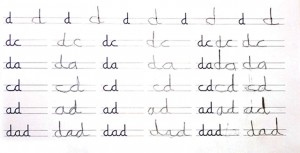 d d d d d d d d d d
dc dc dc dc dcdc dc
da da da da dada da
cd cd cd cd cdcd cd
ad ad ad ad adad ad
dad dad dad dad dad dad